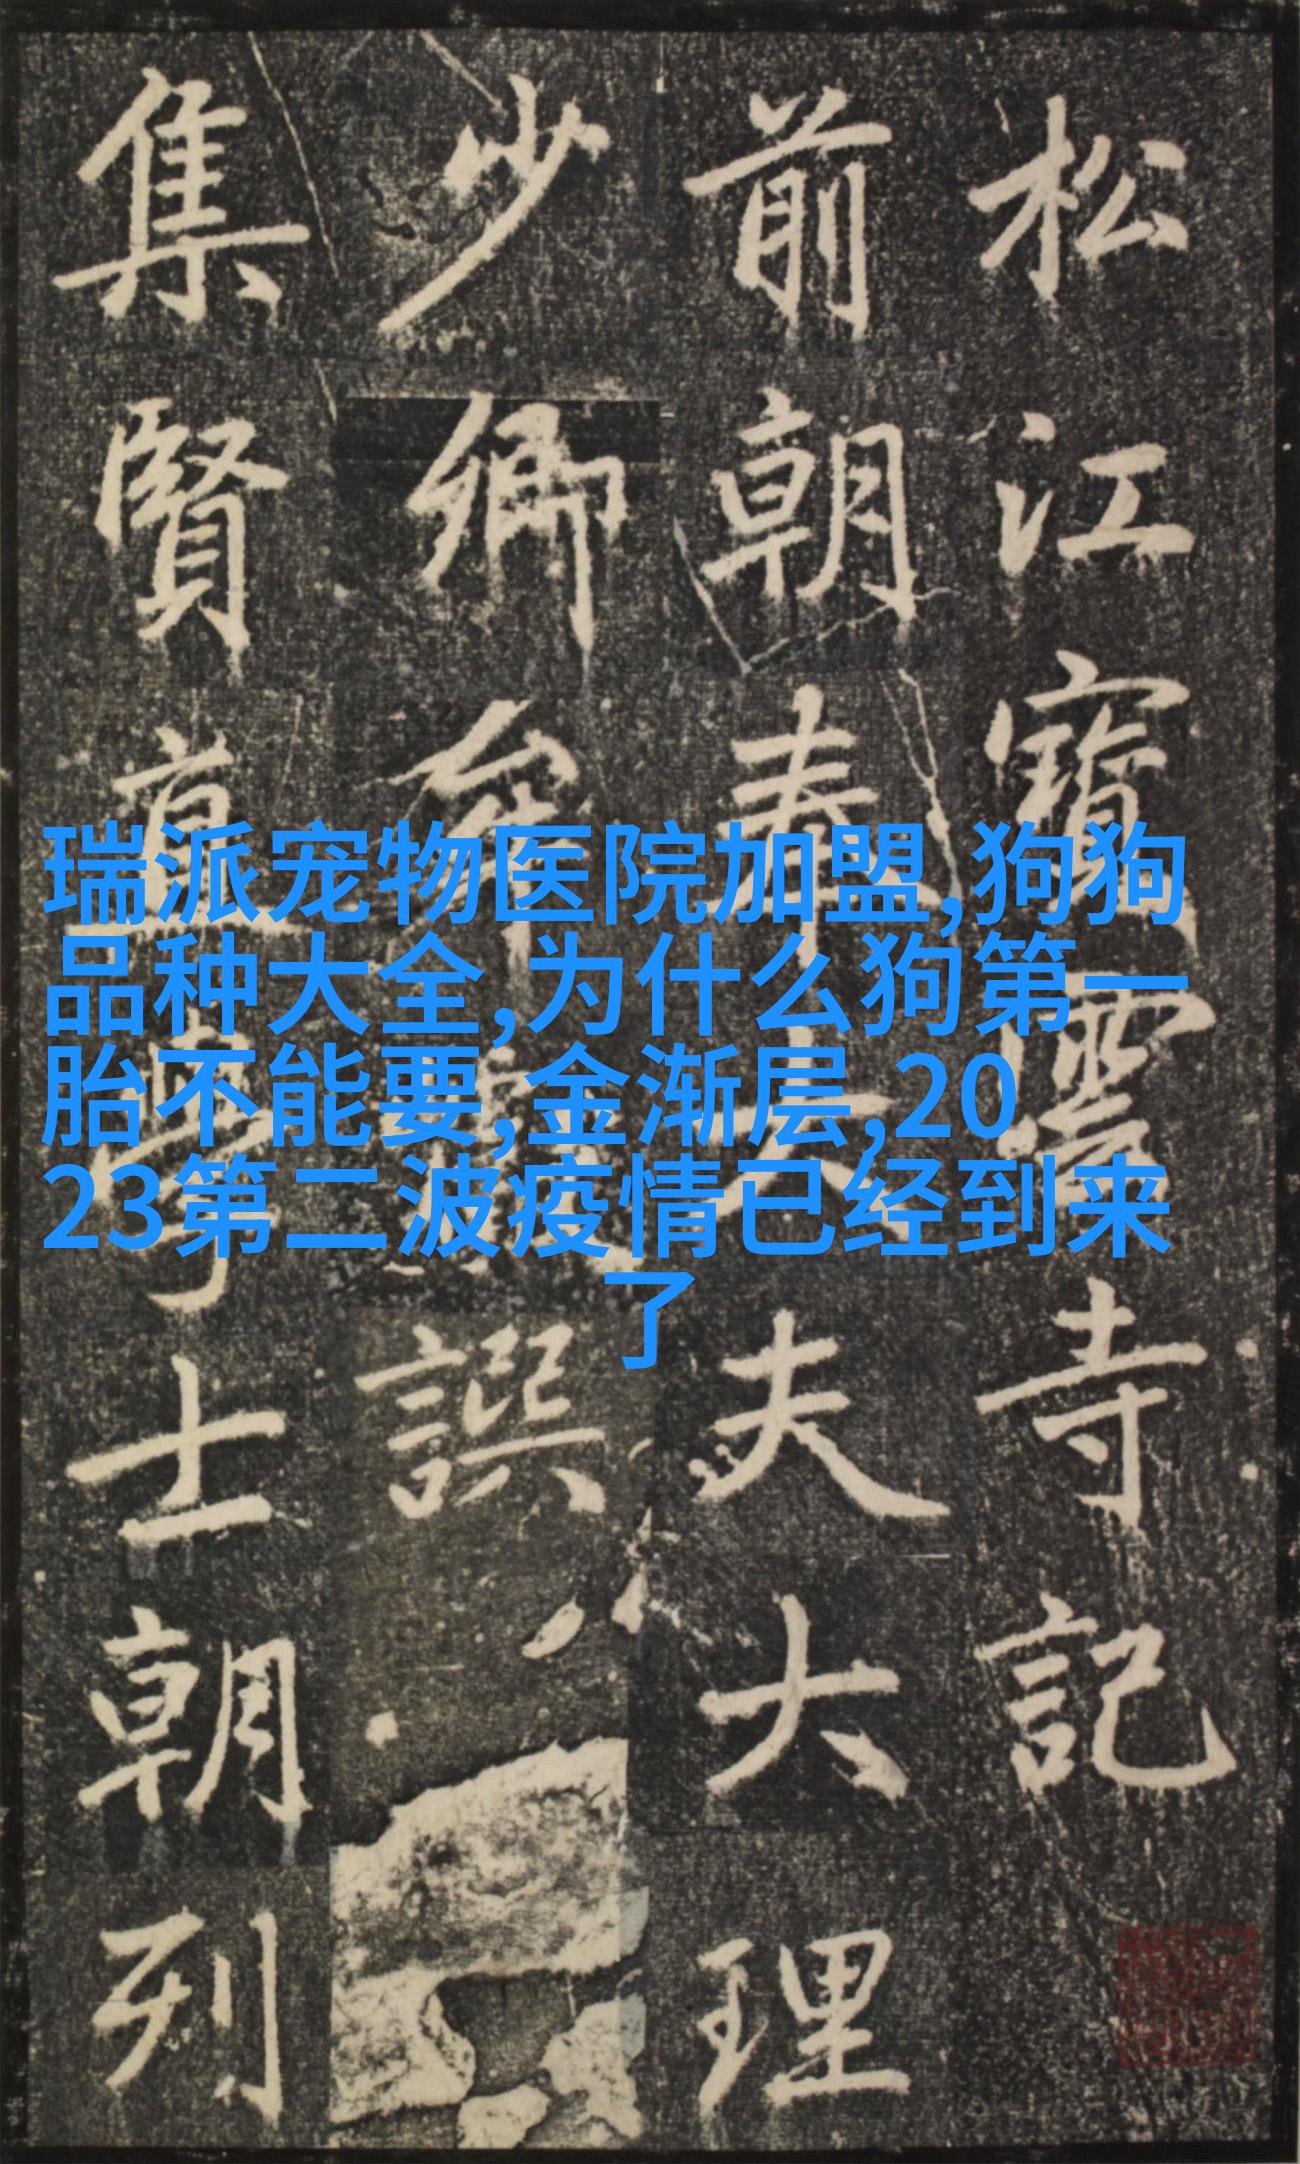 松江寳雲寺記
前朝奉大夫大理
少卿牟巘譔
集賢直學士朝列
瑞派宠物医院加盟,狗狗
品种大全,为什么狗第一
胎不能要,金渐层,20
23第二波疫情已经到来
了